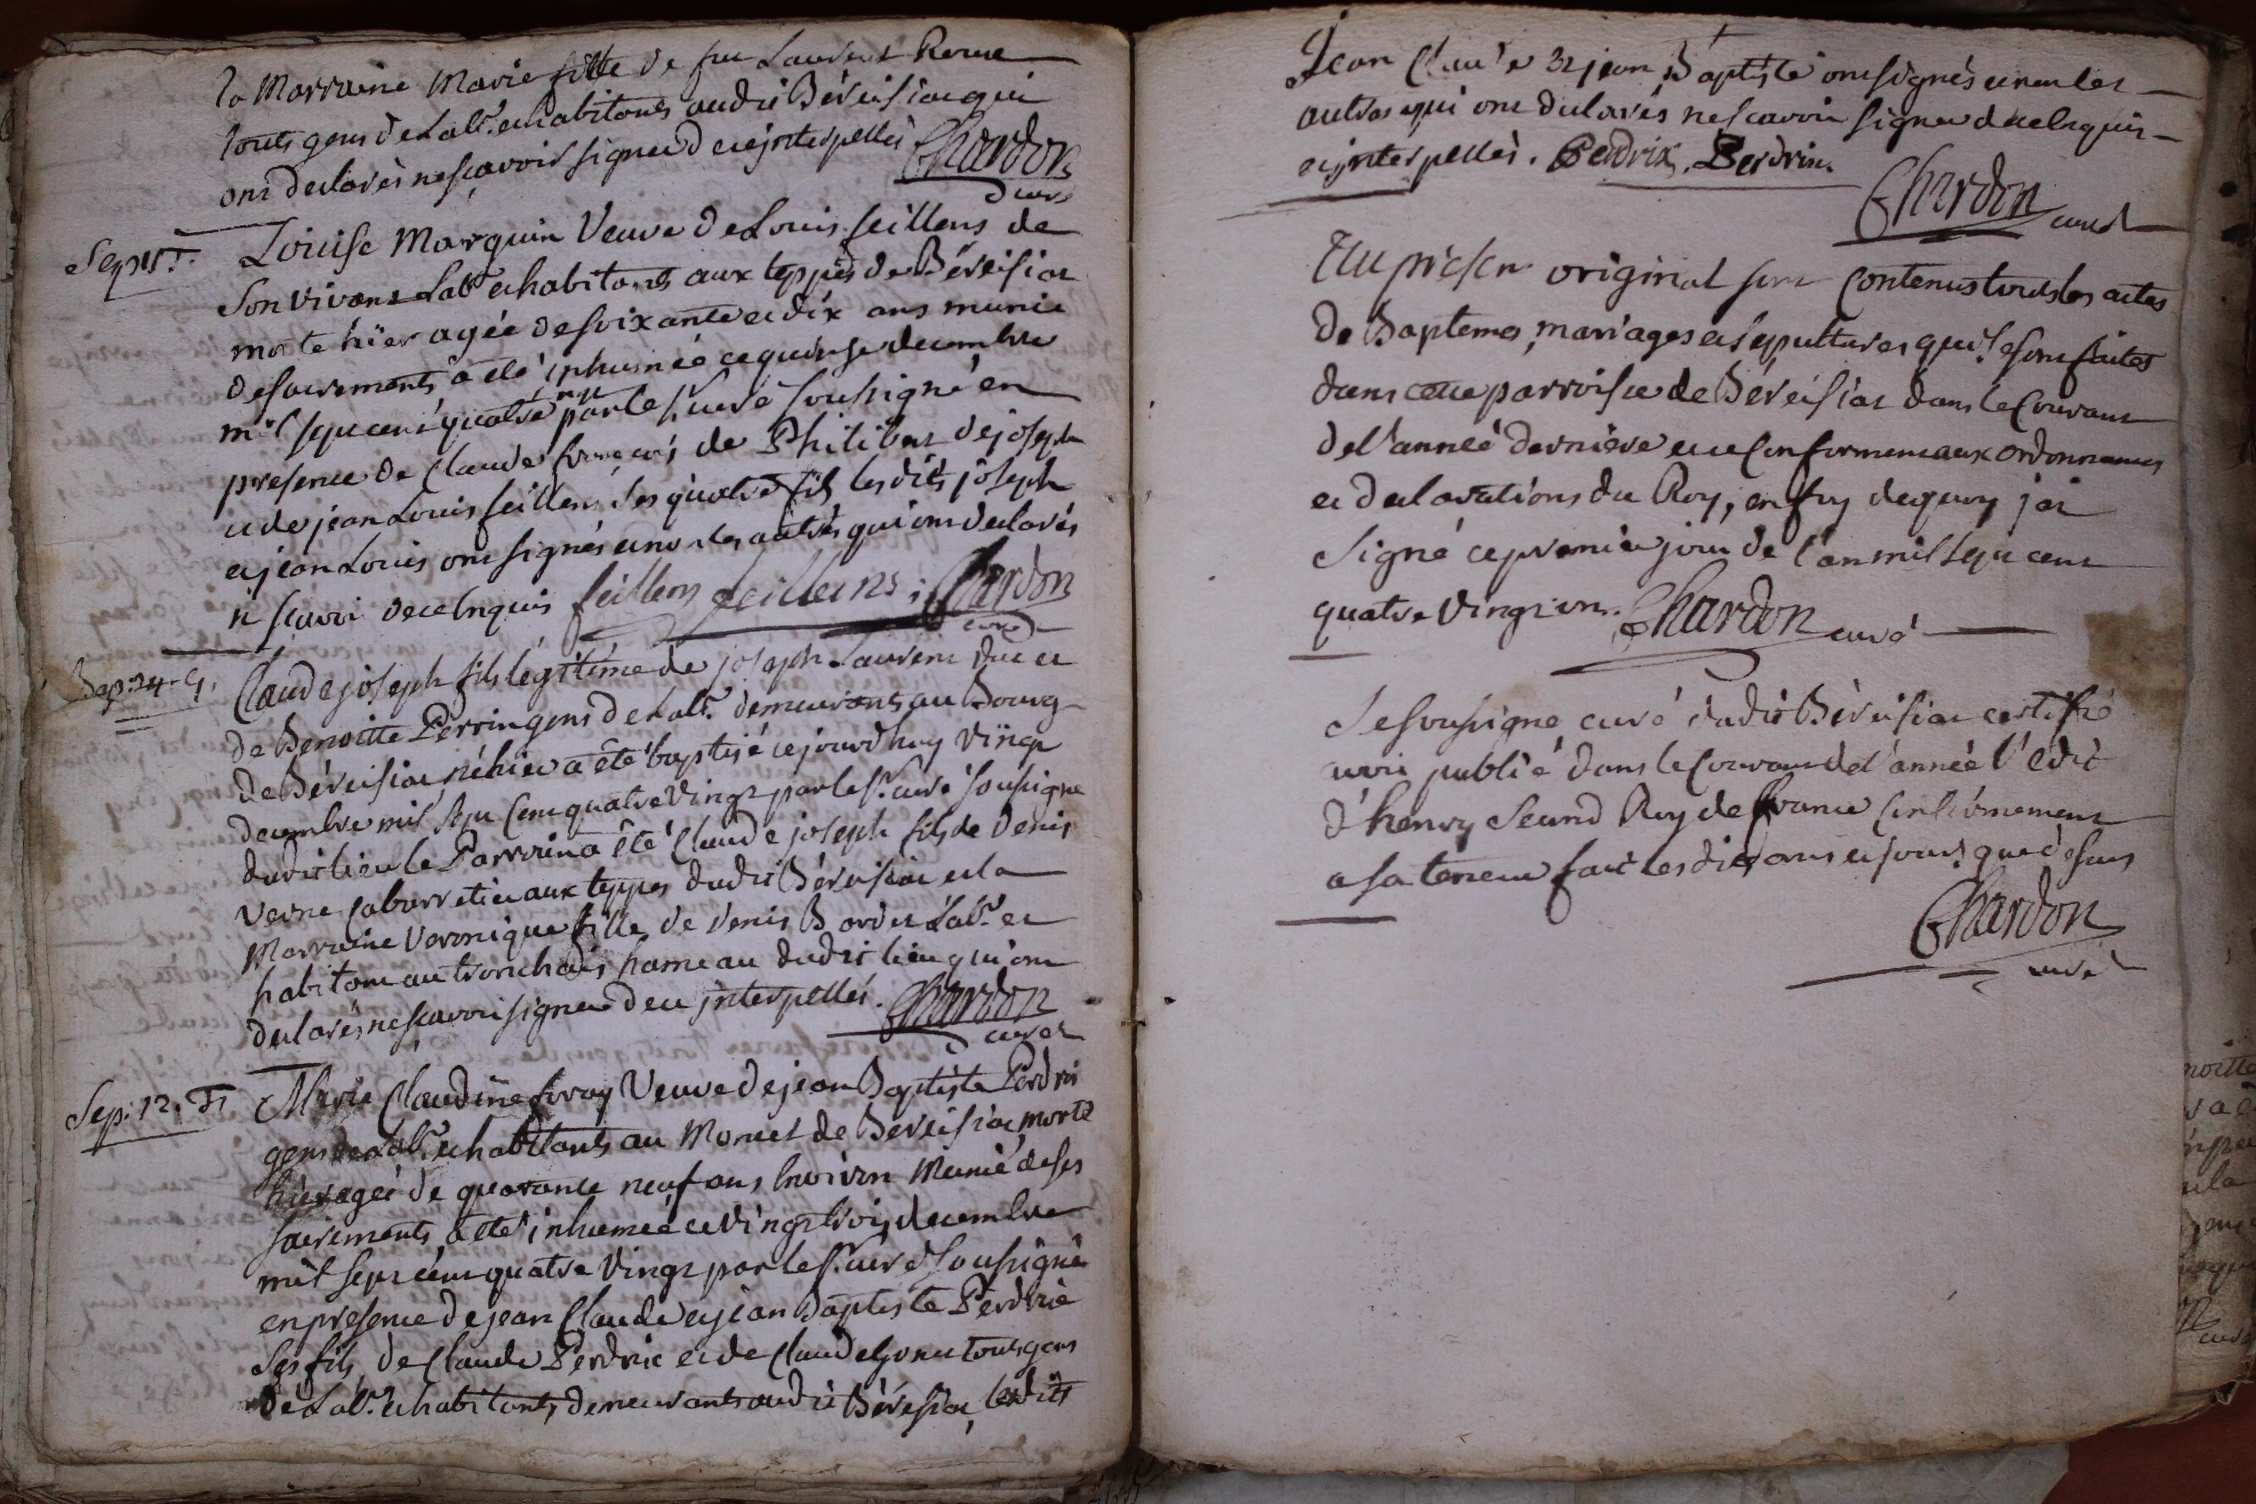 la Marraine Marie fille de feu Laurent
touts gens de Labr. et habitants audit Béréisiat qui
ont déclarés ne sçavoir signer de ce interpellés Chardon
curé
Sep. 11. F.
Louise Marguin Veuve de Louis feillens de
Son vivant Labr et habitants aux teppes de Béréisiat
morte hïer agée de soixante et dix ans munie
de sacrements a été inhumée ce quinze decembre
mil sept cent quatre vingt par le Sr. curé soussigné en
presence de Claude françois de Philibert de joseph
et de jean Louis feillens ses quatre fils lesdits joseph
et jean Louis ont signés et non les autres qui ont declarés
n sçavoir de ce enquis feillens feillens ; Chardon
curé
Bap. 24. G.
Claude joseph fils légitime de joseph Laurent et
de Benoitte Perrin gens de Labr. demeurants au Bourg
de Béréisiat né hier a été baptisé ce jourdhuy vingt
decembre mil Sept Cent quatre Vingt par le Sr. curé soussigné
dudit lieu le Parrain a été Claude joseph fils de Denis
Verne Cabarretier aux teppes dudit Béréisiat et la
Marraine Veronique fille de Denis Bordet Labr. et
habitant au tronchais hameau dudit lieu qui ont
déclarés ne sçavoir signer de ce interpellés. Chardon
curé
Sep. 12. F
Marie Claudine Veuve de jean Baptiste Perdrix
gens de Labr. et habitants au Monet de Béréisiat morte
hier agée de quarante neuf ans Environ Munié de ses
sacrements a été inhumeé ce vingt trois decembre
mil sept cent quatre Vingt par le Sr. curé Soussigné
en presence de jean Claude et jean Baptiste Perdrix
Ses fils de Claude Perdrix et de Claude tous gens
de Labr. et habitants demeurants audit Béréisiat, lesdits
Jean Claude et jean Baptiste ont signés et non les
autres qui ont déclarés ne sçavoir signer de ce enquis
et interpellés. Perdrix. Perdrix.
Chardon curé
Au présent original sont Contenus touts les actes
de Baptemes, mariages et sépultures qui se sont faites
dans cette parroisse de Béréisiat dans le Courant
de l'anneé derniére et ce Conformement aux ordonnances
et déclarations du Roy, en foy dequoy j'ai
Signé ce premier jour de l'an mil Sept cent
quatre Vingt un. Chardon curé
Je soussigné curé dudit Béréisiat certifié
avoir publié dans le Courant de l'année l'edit
d'henry Second Roy de france Conformement
a sa teneur fait les dits ans et jours que dessus
Chardon
curé